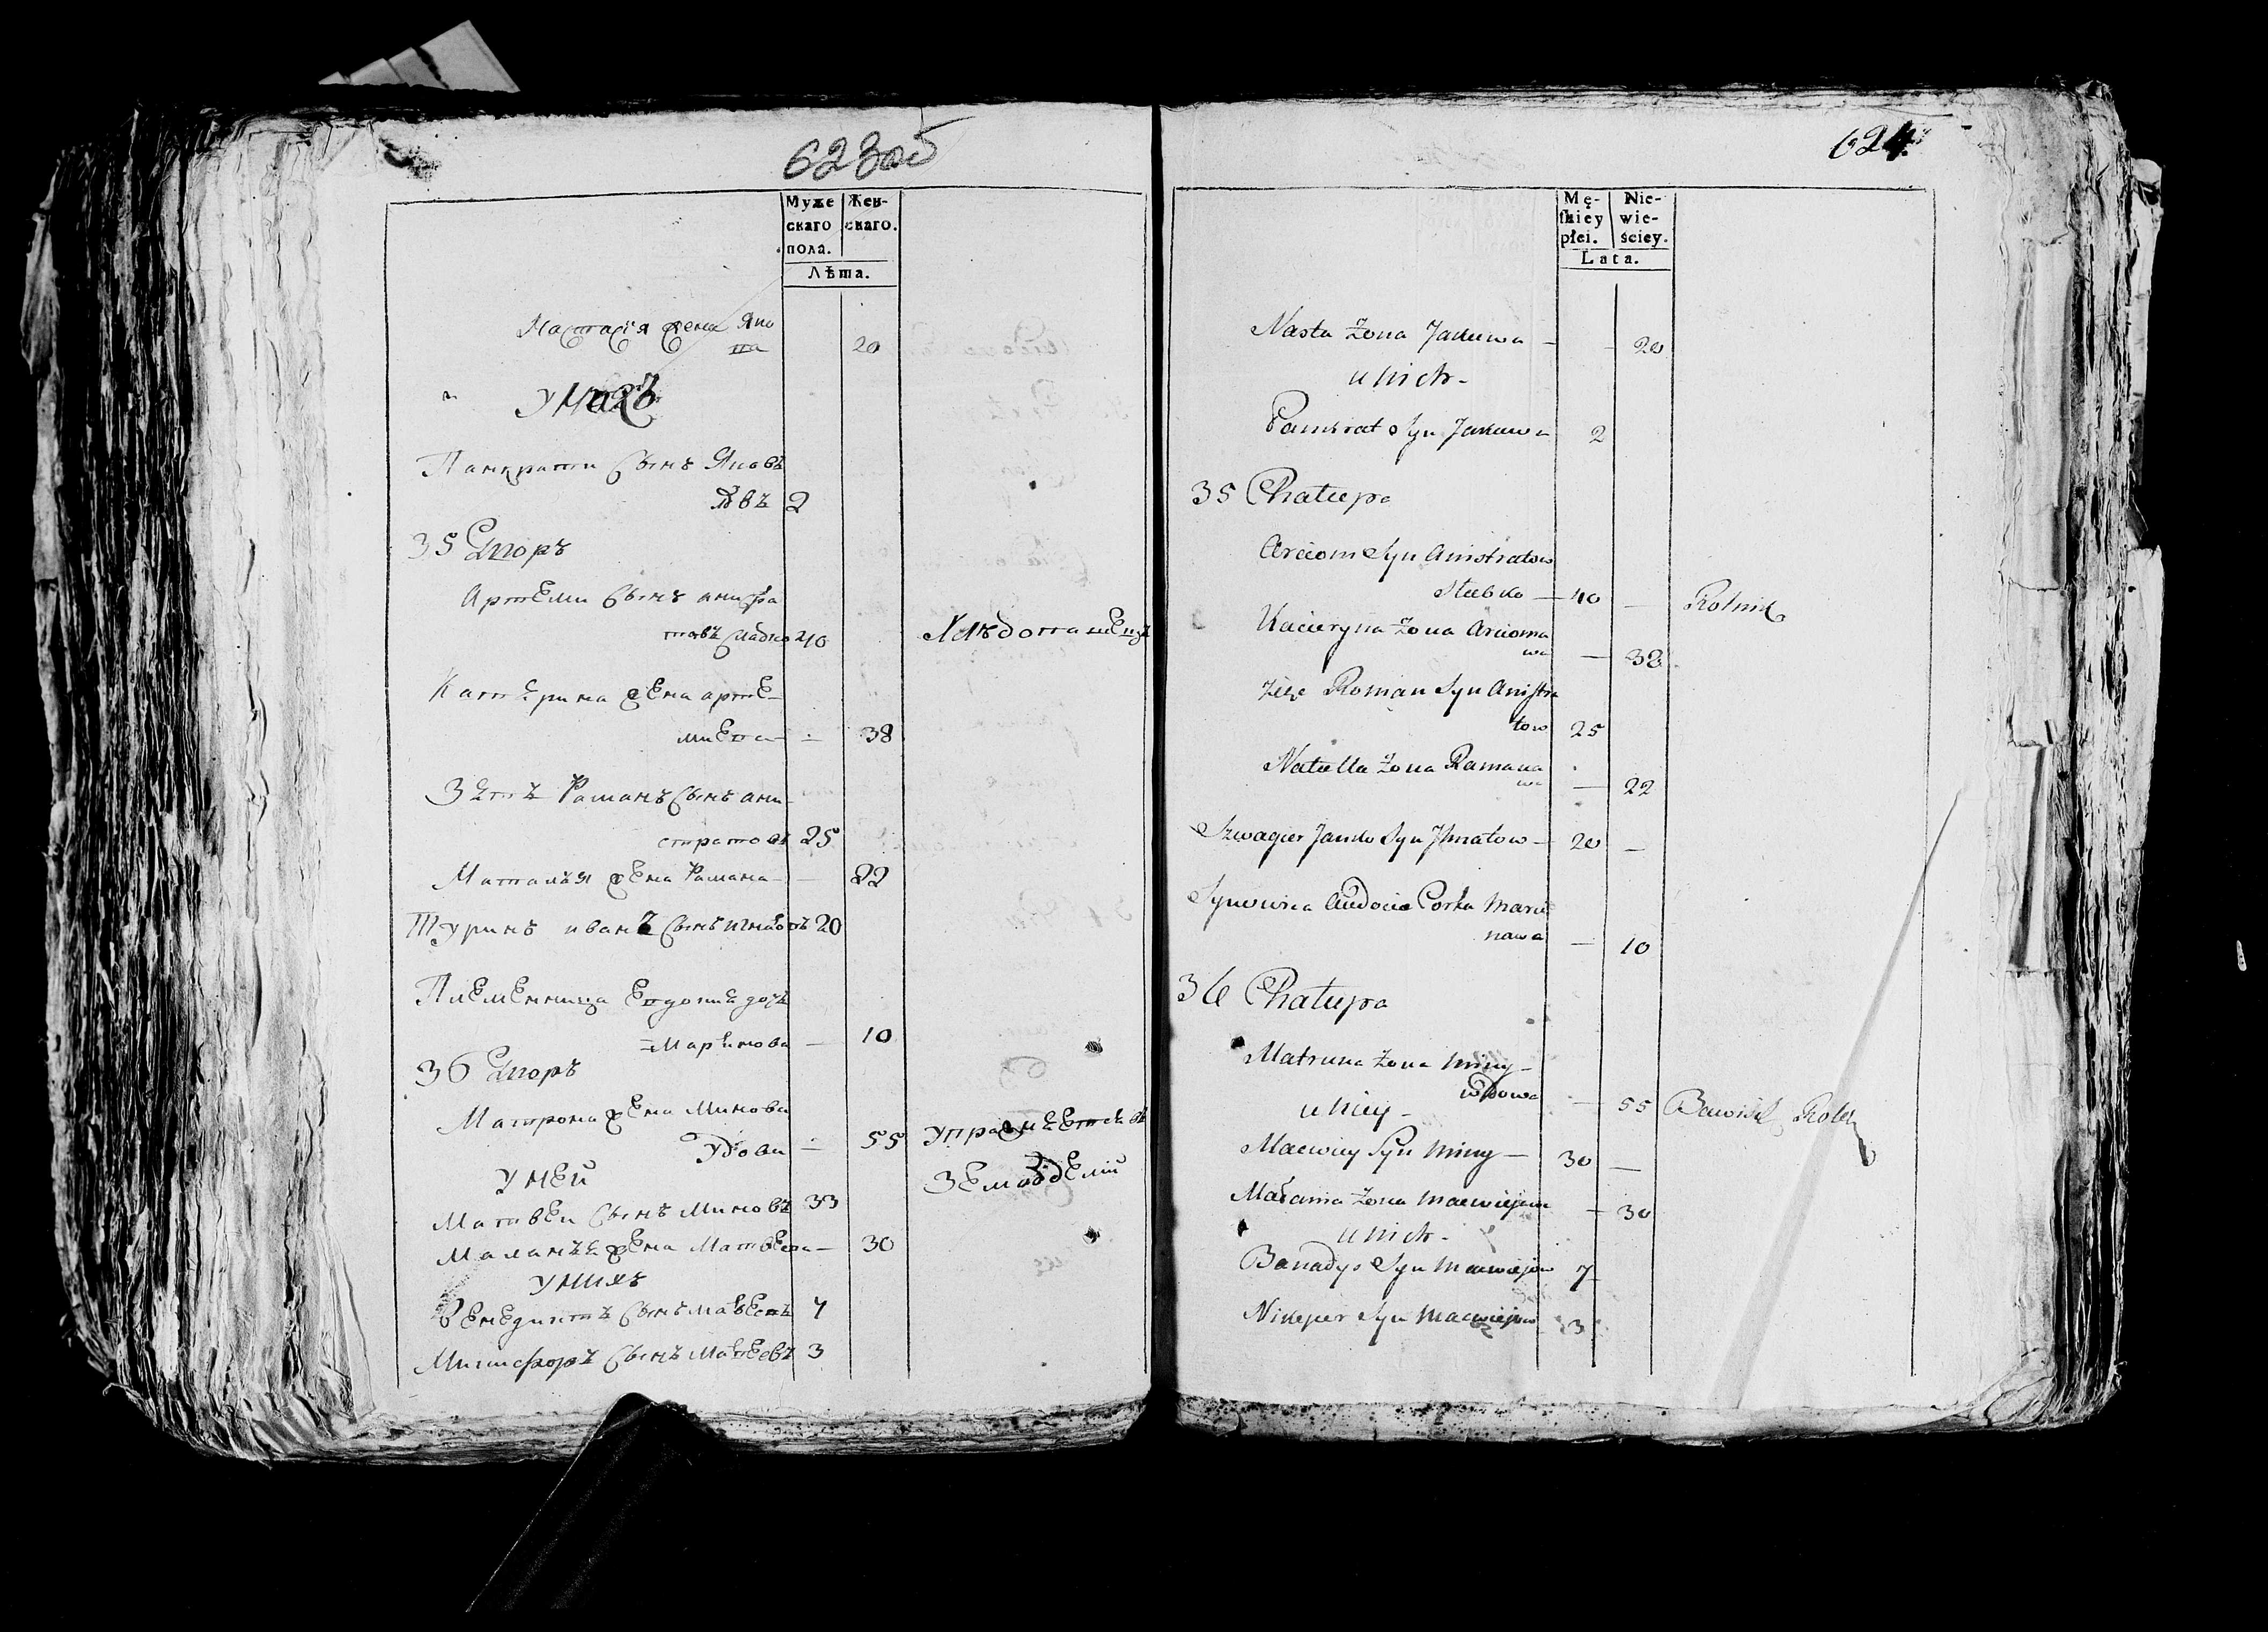 623об
Муже
скаго
пола.
Жен-
скаго.
Лѣта.
Настасія жена Яко
ва 20
У нихъ
Панкрати Сынъ Яковъ
2
35 Дворъ
Артеми Сынъ анистра
товъ Стабко 40 Хлебопашецъ
Катерина жена арте-
миева - - 38
Зеть Романъ Сынъ ани-
стратовъ 25
Наталья жена Рамана - - 22
Шуринъ иванъ Сынъ игнатовъ 20
Племенница Евдокия дочь
Маринова - 10
36 Дворъ
Матрона жена Минова
Удова - 55 Упражняется въ
У ней земледелии
Матвеи Сынъ Миновъ 33
Маланья жена Матвеева - 30
У нихъ
Венедиктъ Сынъ Матвеевъ 7
Никифоръ Сынъ Матвеевъ 3
624
Mę-
skiey
płci.
Nie-
wie-
ściey.
Lata.
Nasta Zona Jakuwa - - 20
u nich -
Pankrat Syn Jakuwa 2
35 Chałupa
Arciom Syn Anistratow
Stabko - 40 - Rolnik
Kacieryna Zona Arcioma
wa - 38
Zięć Roman Syn Anistra
tow 25
Natalla Zona Ramana
wa - 22
Szwagier Janko Syn Jhnatow - 20 -
Synowica Audocia Corka Mary
nawa - 10
36 Chałupa
Matruna Zona Miny -
Wdowa - 55 Bawi się Rolą
u niey -
Maciwiey Syn Miny - 30 -
Małania Zona Maciwiejewa - 30
u nich -
Banadys Syn Maciwiejow 7
Nikiper Syn Maciwiejow 3